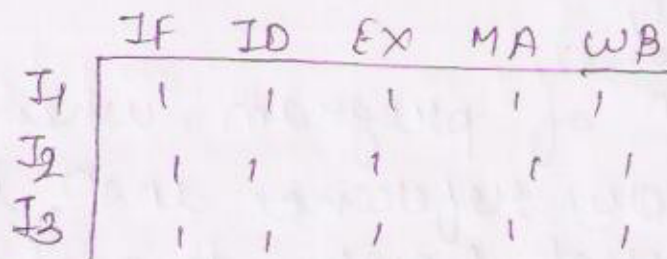 IF ID EX MA WB
I1 1 1 1 1 1
I2 1 1 1 1 1
I3 1 1 1 1 1